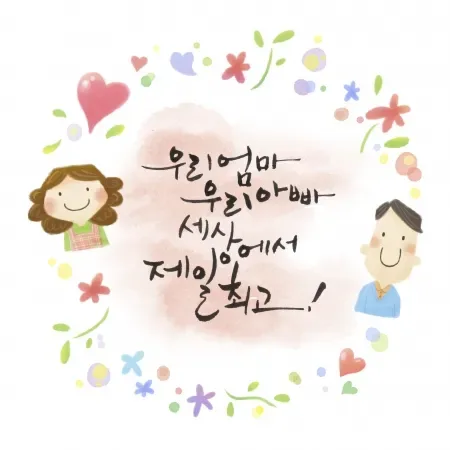 우리 엄마
우리 아빠
세상에서
제일 최고!